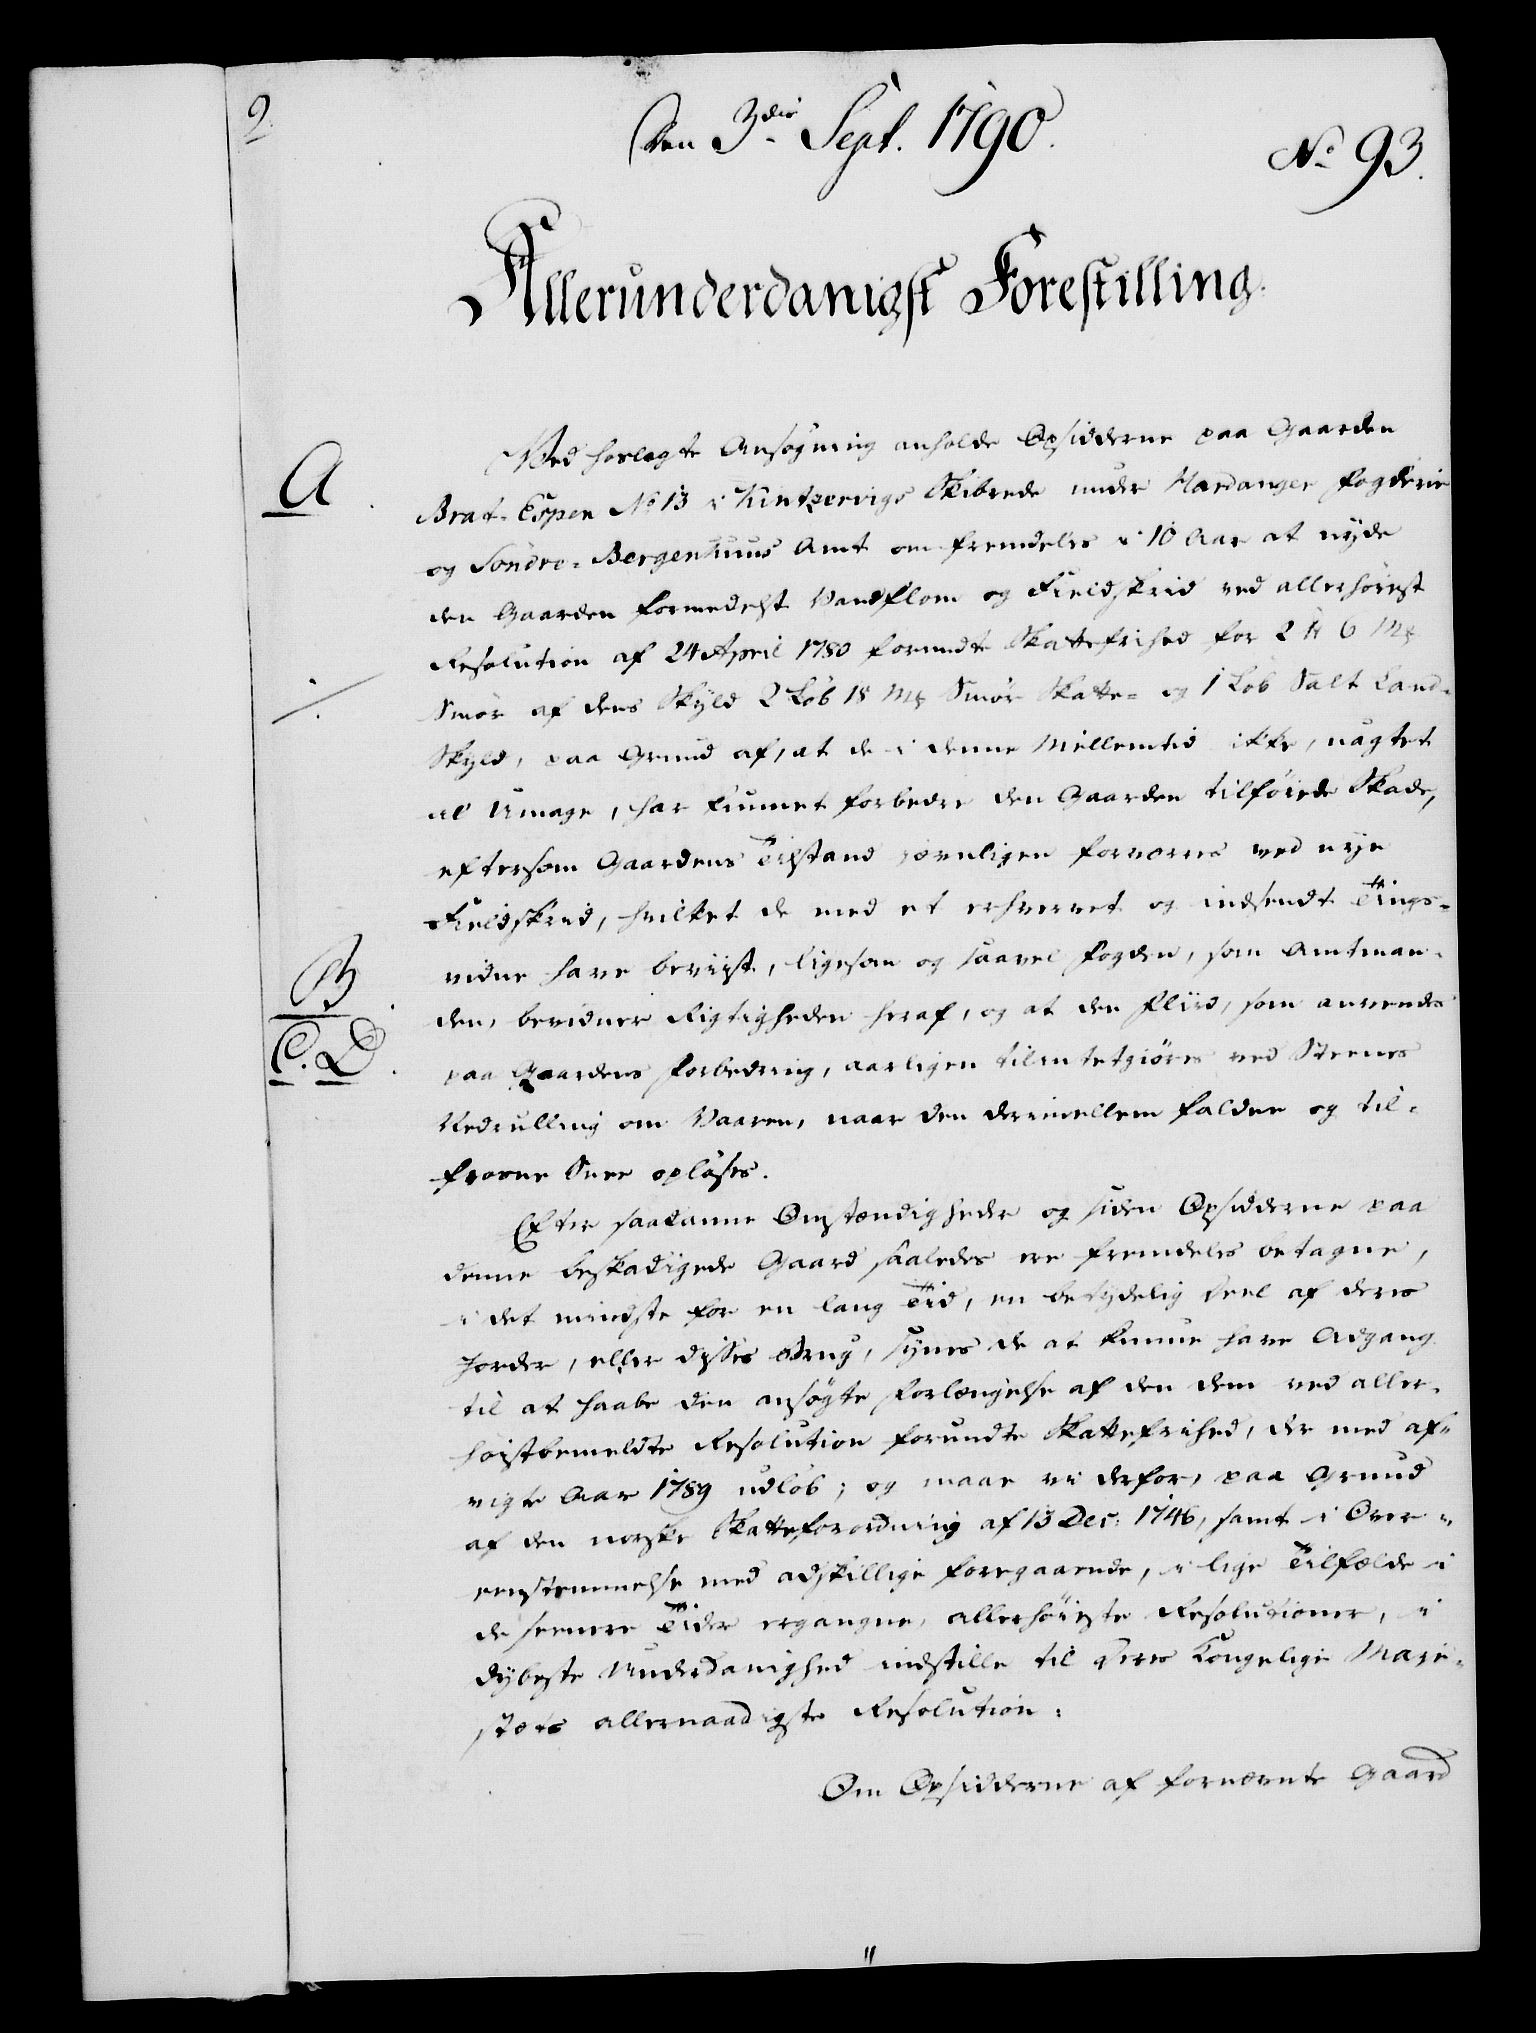 2.
Den 3die Sept. 1790.
No 93.
Allerunderdanigst Forestilling.
A
Ved hoslagte Ansøgning anholde Opsidderne paa Gaarden
Brat-Espen No 13 i Kintzervigs Skibrede under Hardanger Fogderie
og Söndre-Bergenhuus Amt om fremdeles i 10 Aar at nyde
den Gaarden formedelst Vandflom og Fieldskrid ved allerhöiest
Resolution af 24 April 1780 forundte Skattefrihed for 2 tt 6 Mk
Smör af dens Skyld 2 Löb 18 Mk Smör Skatte- og 1 Löb Salt Land-
Skyld, paa Grund af, at de i denne Mellemtid ikke, uagtet
al Umage, har kunnet forbedre den Gaarden tilföiede Skade,
eftersom Gaardens Tilstand jævnligen forværres ved nye
Fieldskred, hvilket de med et erhvervet og indsendt Tings-
B
vidne have beviist, ligesom og saavel Fogden, som Amtman-
den, bevidner Rigtigheden heraf, og at den Fliid, som anvendes
C. D.
paa Gaardens Forbedring, aarligen tilintetgiöres ved Steenes
Nedrulling om Vaaren, naar den derimellem faldne og til-
frosne Snee oplöses.
Efter saadanne Omstændigheder og siden Opsidderne paa
denne beskadigede Gaard saaledes ere fremdeles betagne,
i det mindste for en lang Tid, en betydelig Deel af deres
Jorder, eller disses Brug, synes de at kunne have Adgang
til at haabe den ansögte Forlængelse af den dem ved aller-
höistbemeldte Resolution forundte Skattefrihed, der med af-
vigte Aar 1789 udlöb; og maae vi derfor, paa Grund
af den norske Skatteforordning af 13 Dec: 1746, samt i Over-
eensstemmelse med adskillige foregaaende, i lige Tilfælde i
de seenere Tider ergangne, allerhöieste Resolutioner, i
dybeste Underdanighed indstille til Deres Kongelige Maje-
stæts allernaadigste Resolution:
Om Opsidderne af fornævnte Gaard